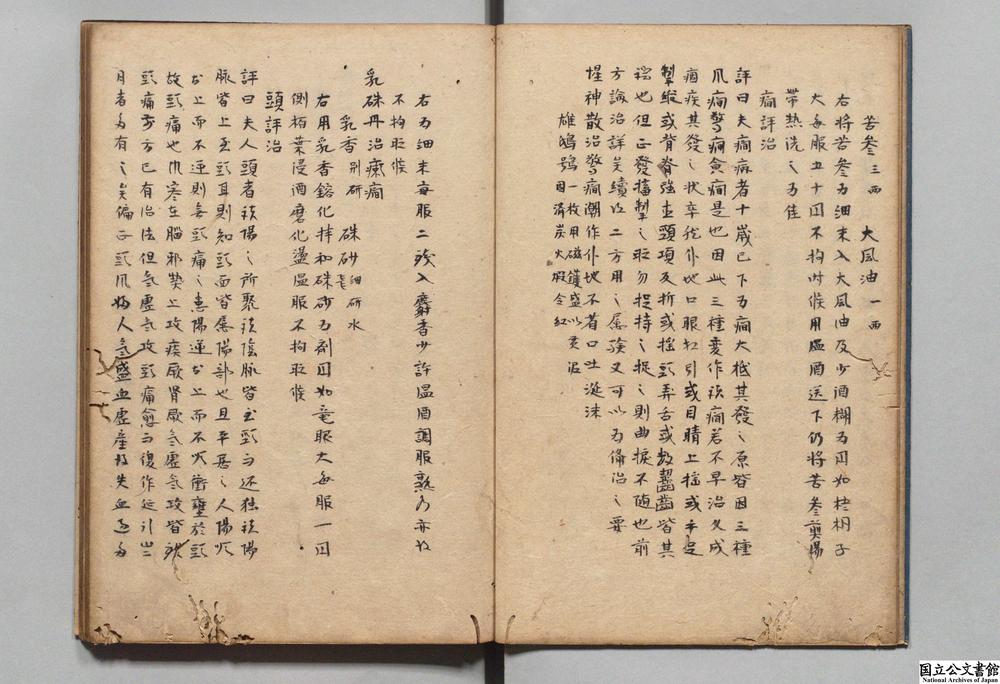 苦參三兩　大風油一兩
右將苦參為細末入大風油及少酒糊為圓如梧桐子
大每服五十圓不拘時候用温酒送下仍將苦參煎湯
帶熱洗之為佳
癇評治
評曰夫癇病者十歲已下為癇大抵其發之原皆因三種
風癇驚癇食癇是也因此三種變作諸癇若不早治久成
痼疾其發之狀卒然仆地口眼相引或目睛上搖或手足
掣縱或背脊強直頸項反折或搖頭弄舌或數齧齒皆其
證也但正發搐掣之時勿捉持之捉之則曲捩不随也前
方論治詳矣續以二方用之屢驗又可以為備治之要
惺神散治驚癇潮作仆地不省口吐涎沫
雄鴟鴞一枚用磁鑵盛以黄泥
固濟炭火煅令紅
右為細末每服二錢入麝香少許温酒調服熟乃亦
不拘時候
乳硃丹治癲癇
乳香別研　硃砂細研水
右用乳香鎔化拌和硃砂為劑圓如竜眼大每服一圓
側栢葉浸酒磨化盪温服不拘時候
頭評治
評曰夫人頭者諸陽之所聚諸陰脉皆至頸而还独諸陽
脉皆上至頭耳則知頭面皆屬陽部也且平居之人陽氣
上而不逆則無頭痛之患陽逆於上而不火衝壅於頭
故頭痛也巾寒在腦邪熱上攻痰厥腎厥氣虚氣攻皆
頭痛前方已有治法但氣虚氣攻頭痛愈而復作延引
月者多有之矣偏正頭風婦人氣盛血虚産後失血過多
国立公文書館
National Archives of Japan